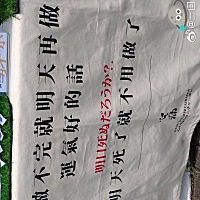 做不完就明天再做
運氣好的話
明日死ぬだろうか?.
明天死了就不用做了